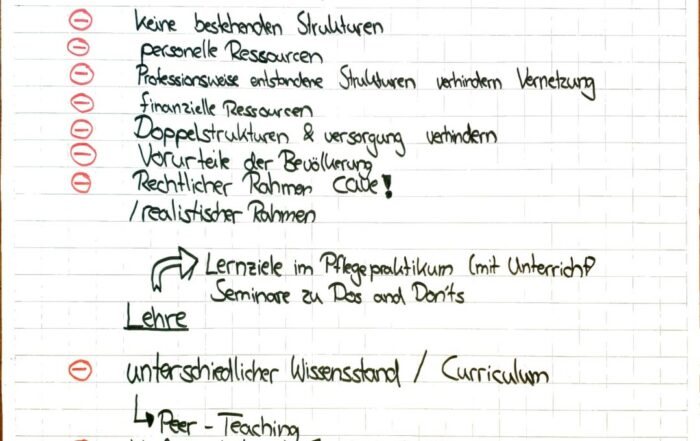 keine bestehenden Strukturen
personelle Ressourcen
Professionsweise entstandene Strukturen verhindern Vernetzung
finanzielle Ressourcen
Doppelstrukturen & versorgung verhindern
Vorurteile der Bevölkerung
Rechtlicher Rahmen cave!
/realistischer Rahmen
Lernziele im Pflegepraktikum (mit Unterricht?
Seminare zu Dos and Don'ts
Lehre
unterschiedlicher Wissensstand / Curriculum
Peer - Teaching